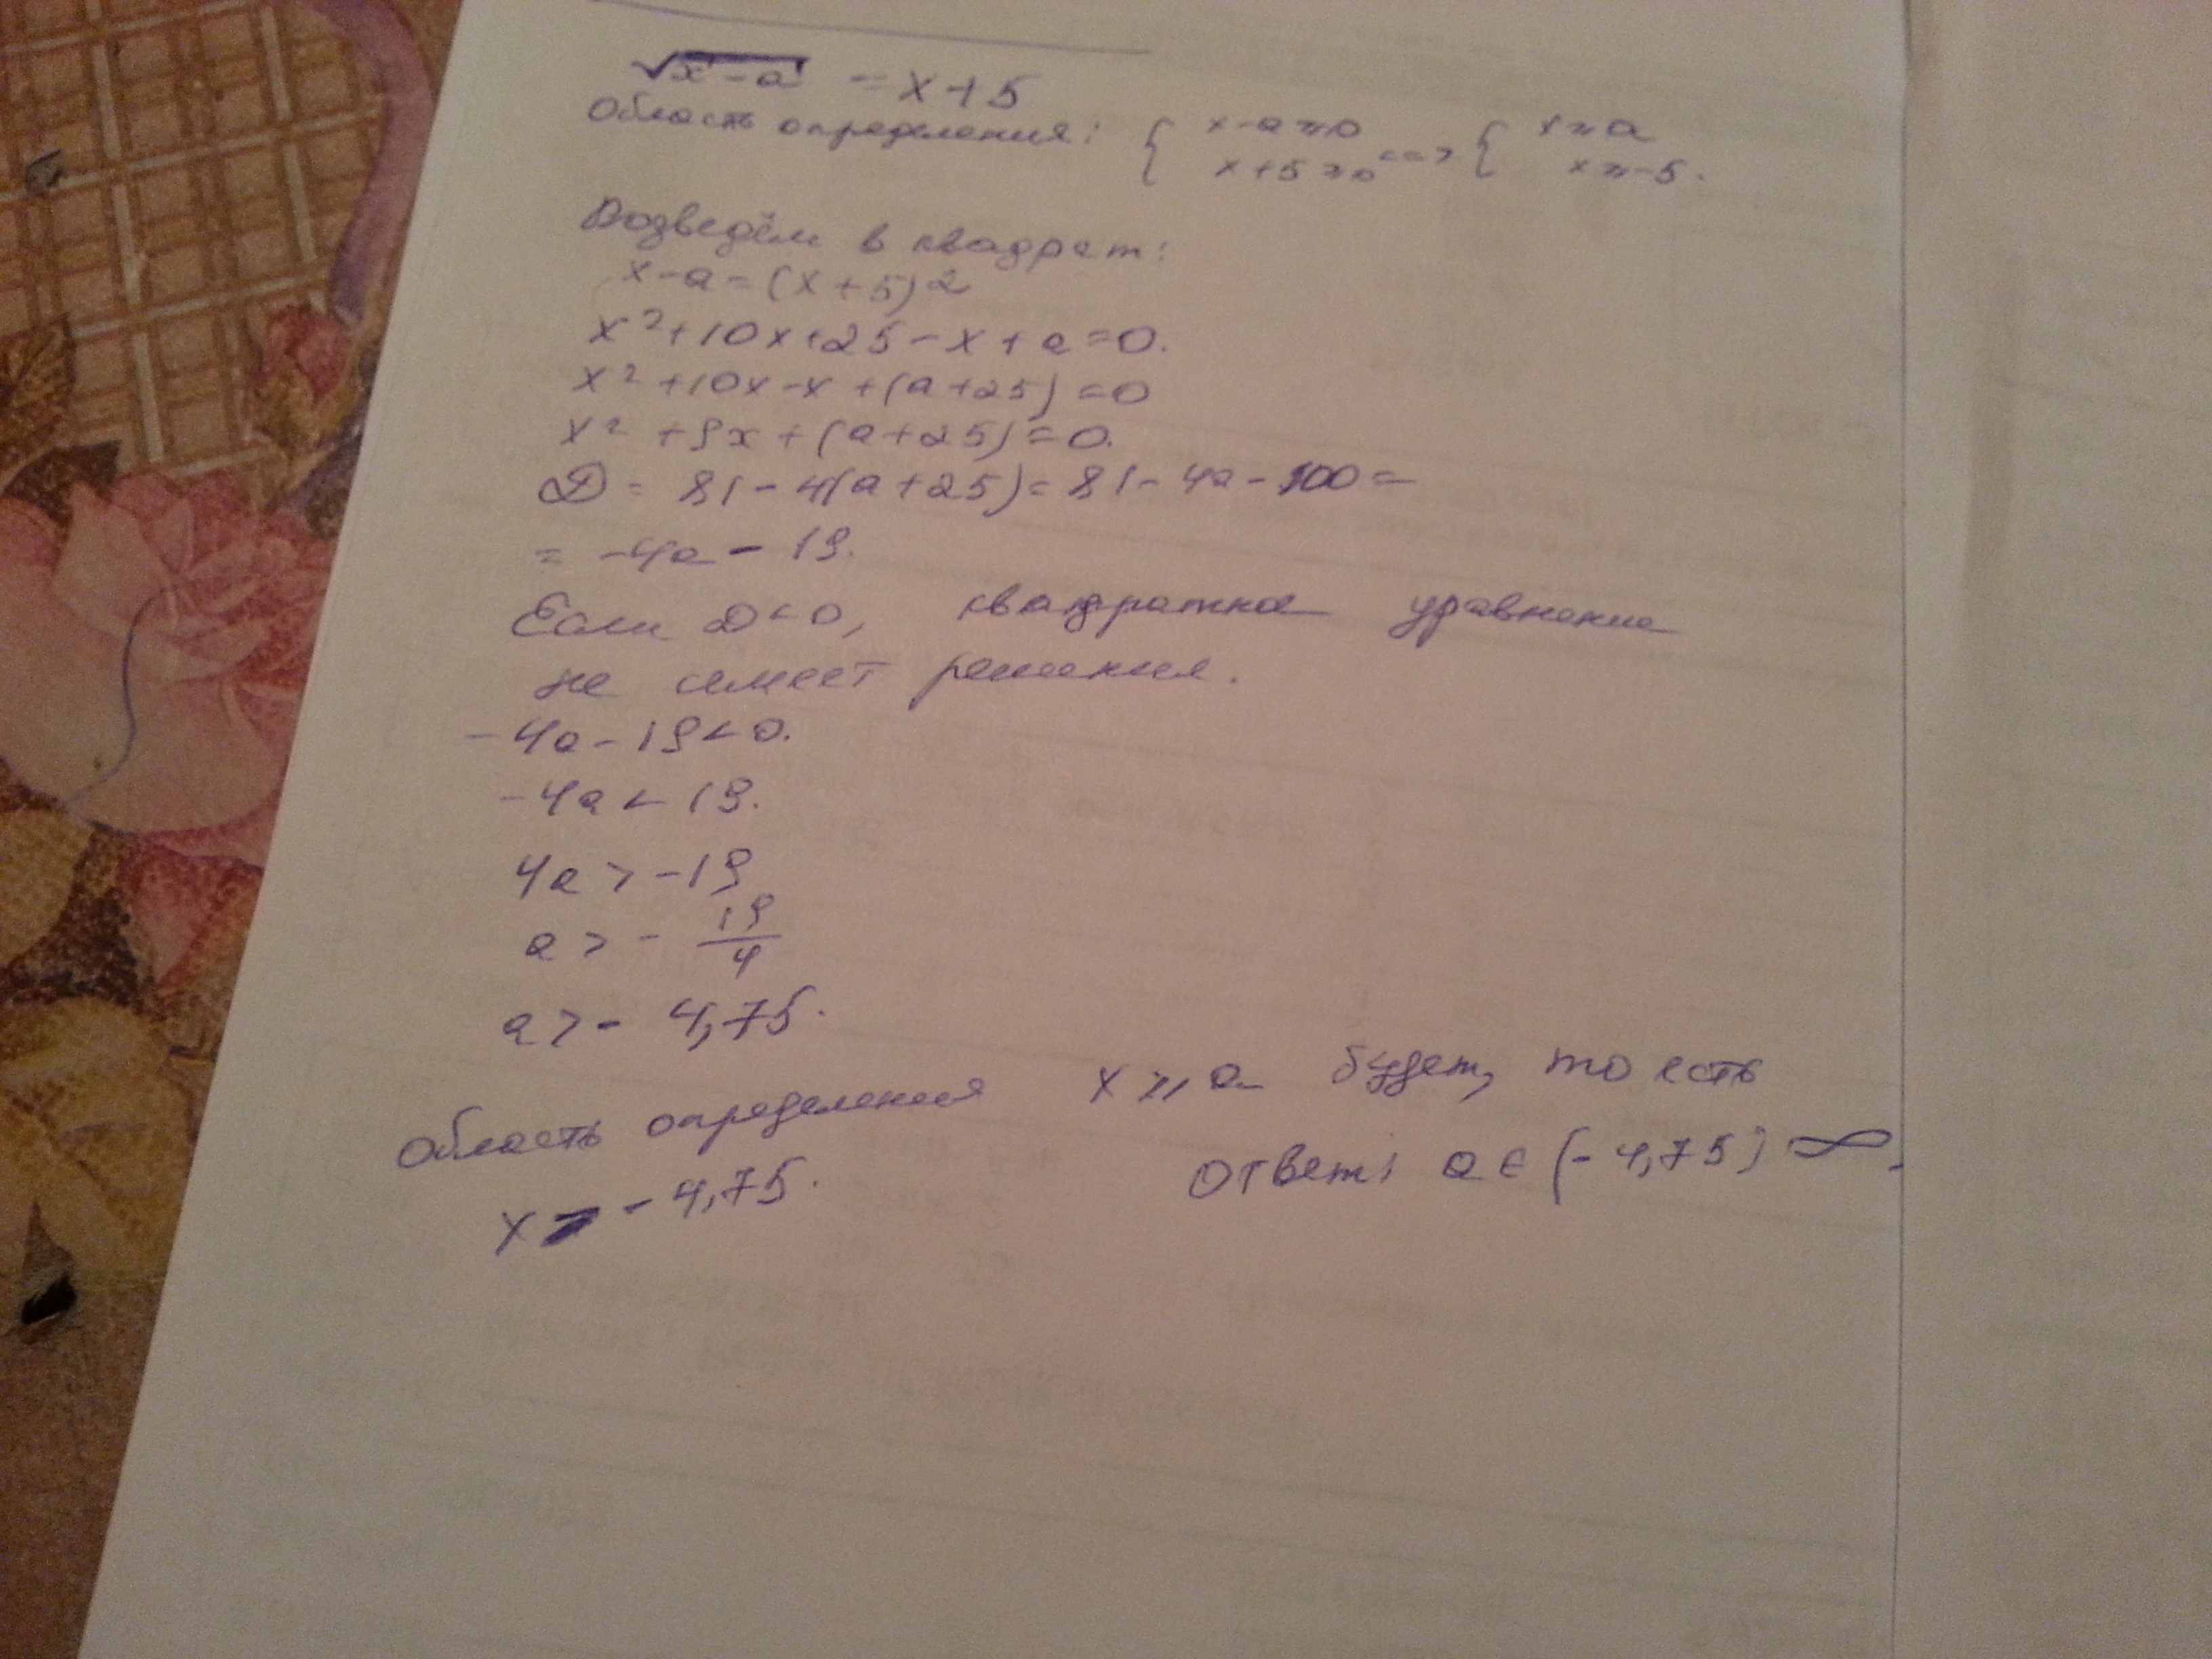 √x-a = x+5
Область определения: { x-a≥0 x+5≥0 <=> { x≥a x≥-5.
Возведём в квадрат:
x-a=(x+5)2
x²+10x+25-x+a=0.
x²+10x-x+(a+25)=0
x²+9x+(a+25)=0.
D = 81-4(a+25)=81-4a-100=
= -4a-19.
Если D<0, квадратное уравнение
не имеет решения.
-4a-19<0.
-4a<19.
4a>-19
a>-19/4
a>-4,75.
Область определения x≥a будет, то есть
x>-4,75. Ответ: a∈(-4,75) ∞.